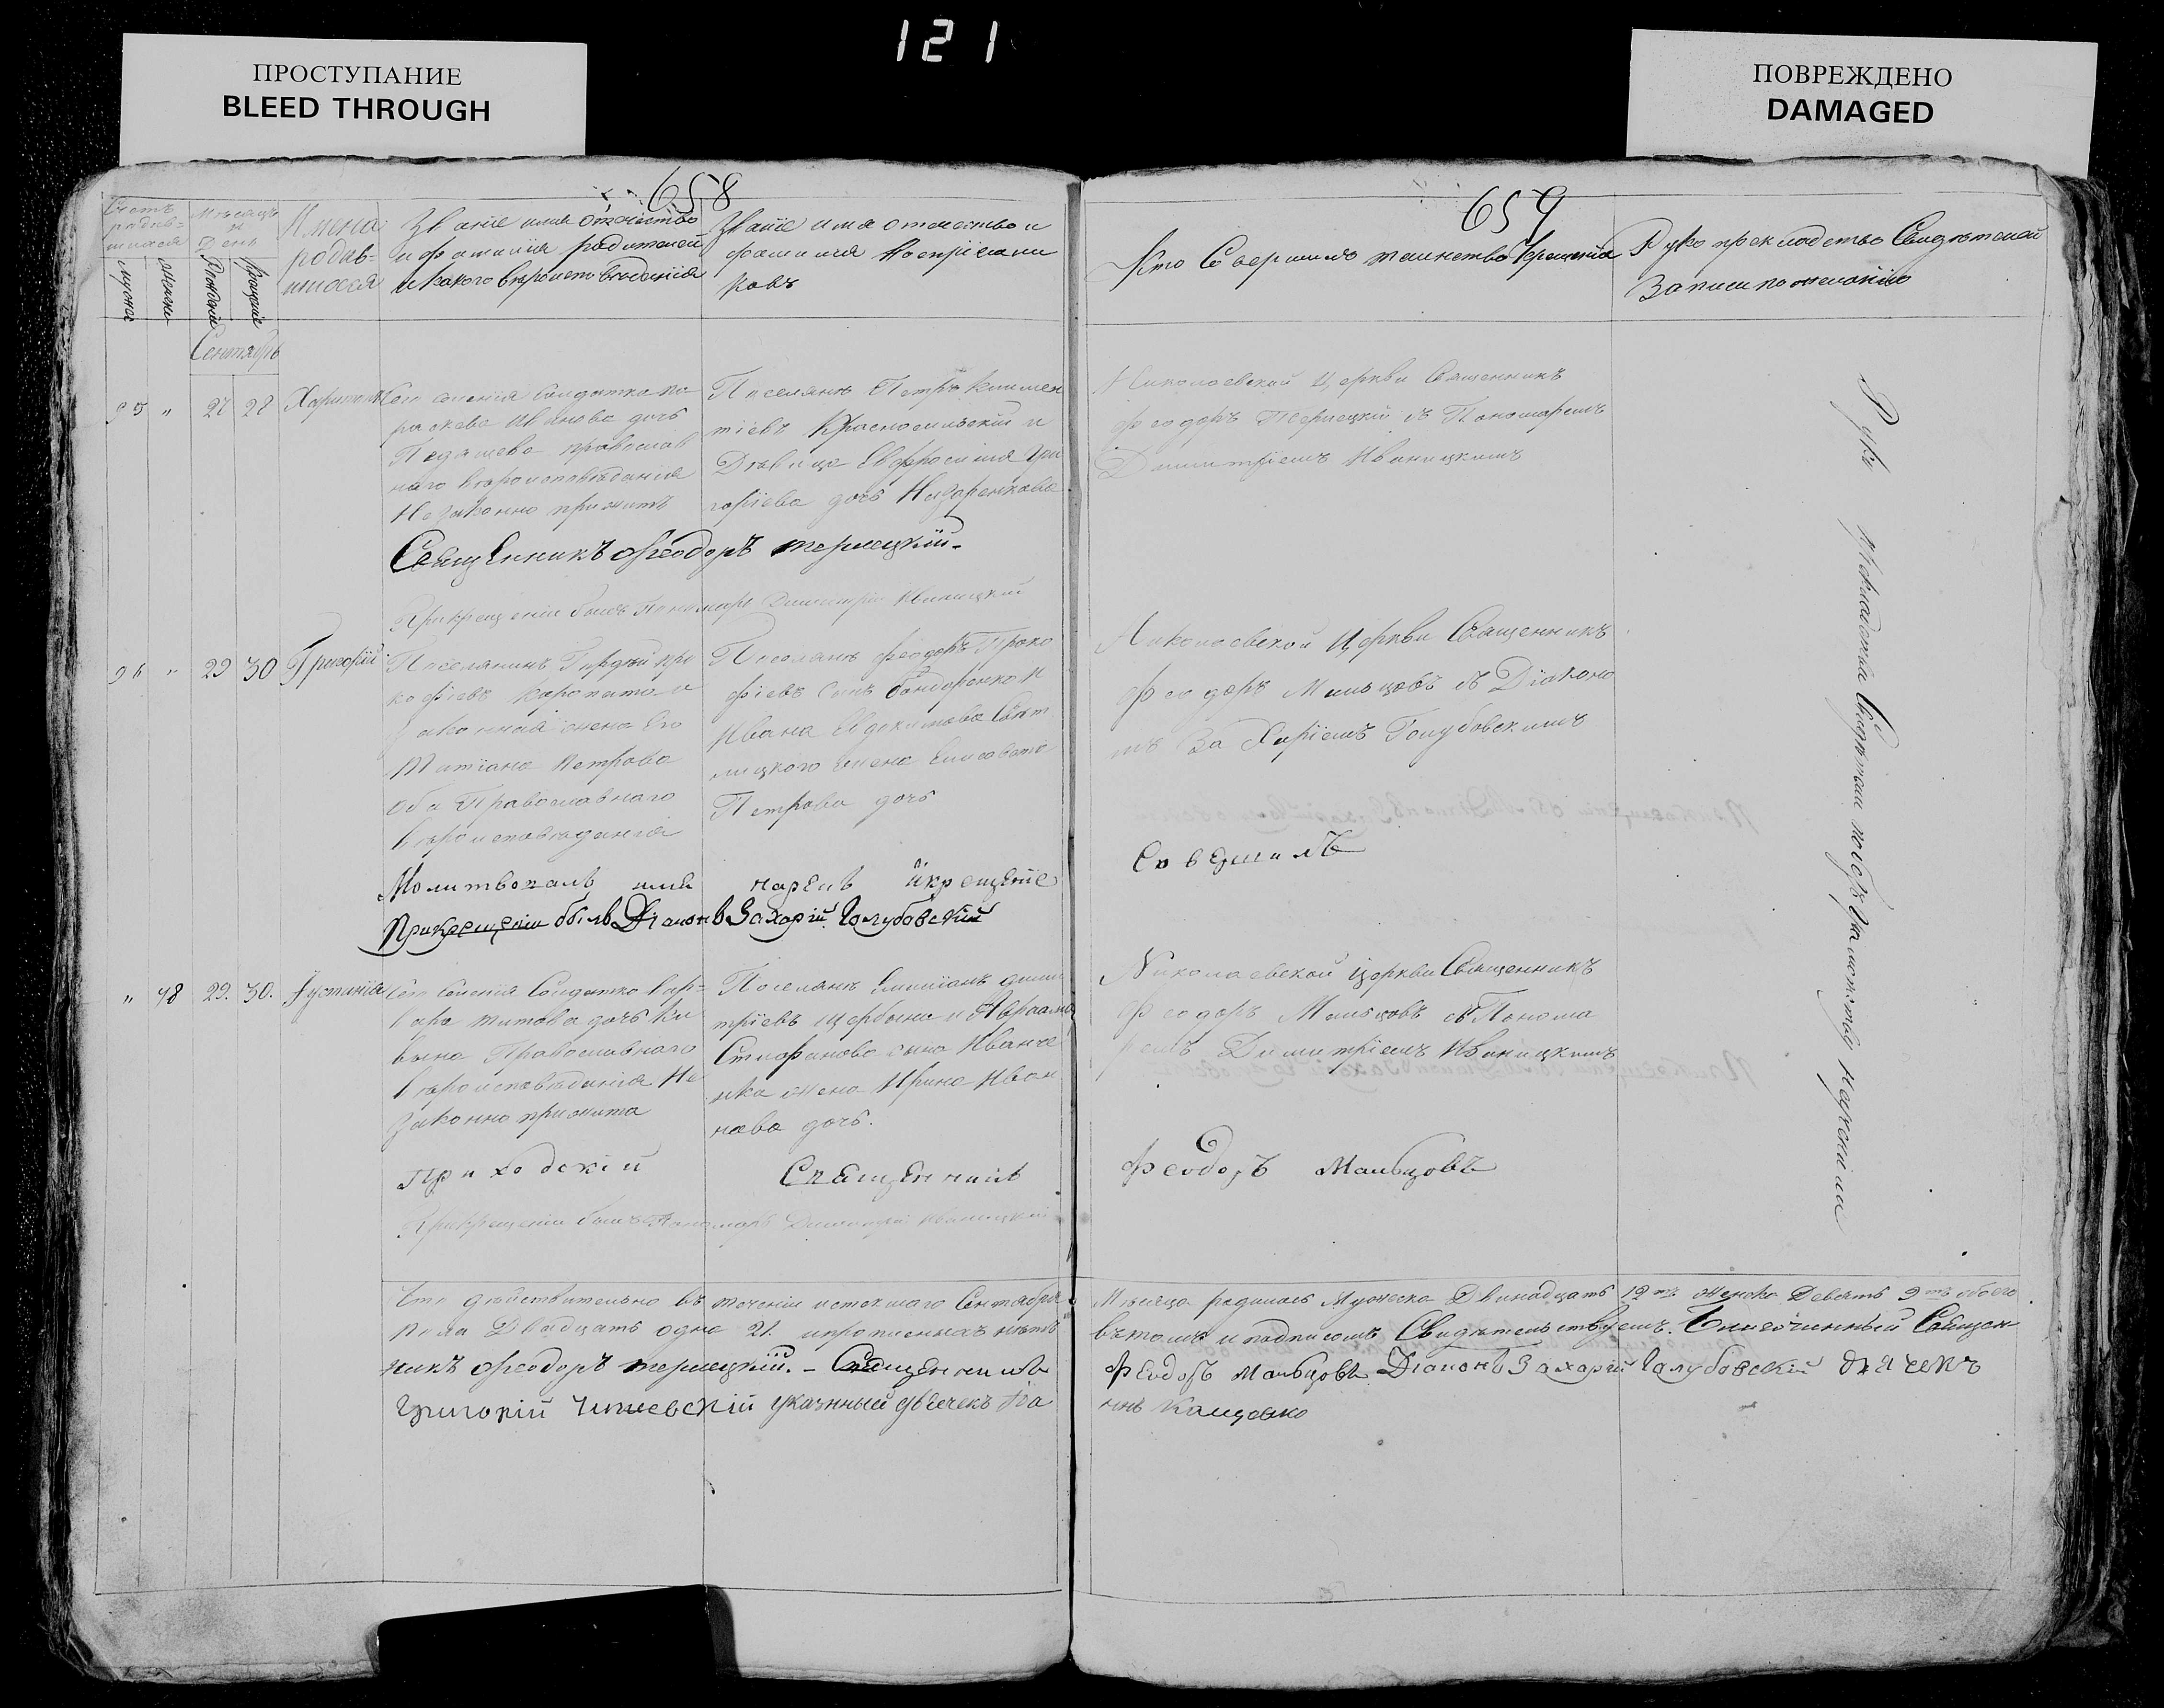 121
ПРОСТУПАНИЕ
BLEED THROUGH
ПОВРЕЖДЕНО
DAMAGED
658
Счетъ
родив=
шихся
Мѣсяцъ
и
День
Имена
родив=
шихся
Званіе имя отечество
и фамилія родителей
и какого вѣроисповѣданія
Званіе имя отечество и
фамилія Воспріемни
ковъ
Сентябрь
95 " 27 28 Харитонъ
Сего селенія солдатка Па
раскева Иванова дочь
православ
наго вѣроисповѣданія
Незаконно прижитъ
Поселянъ Петръ Климен
тіевъ Красносильскій и
Дѣвица Евфросинія Гри
горіева дочь Назаренкова
Священникъ Ѳеодоръ Терлецкій.
При крещеніи былъ Пономарь Димитрій Иваницкій
96 " 29 30 Григорій
Поселянинъ Гордѣй Про
кофіевъ и
Законная жена Его
Татіана Петрова
Оба Православнаго
вѣроисповѣданія
Поселянъ Ѳеодоръ Проко
фіевъ Сынъ Бондаренко и
Ивана Евдокимова Свѣт
лицкого жена Елисавета
Петрова дочь
Молитвовалъ имя нарекъ и крещеніе
При крещеніи былъ Діаконъ Захарій Голубовскій
" 48 29. 30. Іустинія
Сего Селенія Солдатка Вар=
вара Титова дочь
Православнаго
вѣроисповѣданія Не
законно прижита
Поселянъ Емиліанъ Дими
тріевъ Щербина и Авраама
Стефанова сына Иванче
нка жена Ирина Ива
нова дочь.
Приходскій Священникъ
При крещеніи былъ Пономарь Димитрій Иваницкій
Что дѣйствительно въ теченіи истекшаго Сентября
пола Двадцать одна 21. и прописанныхъ нѣтъ
никъ Ѳеодоръ Терлецкій. – Священникъ
Григорій Чишевскій указнный дьячекъ
659
Кто Совершилъ таинство Крещенія
Рукоприкладство Свидѣтелей
Записи по желанію
Николаевской Церкви Священникъ
Ѳеодоръ Терлецкій съ Пономаремъ
Димитріемъ Иваницкимъ
Николаевской Церкви Священникъ
Ѳеодоръ Мальцовъ съ Діаконо
мъ Захаріемъ Голубовскимъ
Совершилъ
Николаевской Церкви Священникъ
Ѳеодоръ Мальцовъ съ Понома
ремъ Димитріемъ Иваницкимъ
Ѳеодоръ Мальцовъ
Мѣсяца родилось Мужеска Двинадцать 12ть женска Девять 9ть обоего
въ томъ и подписомъ Свидѣтельствуемъ. Благочинный Священ
Ѳеодоръ Мальцовъ Діаконъ Захарій Голубовскій дьячекъ